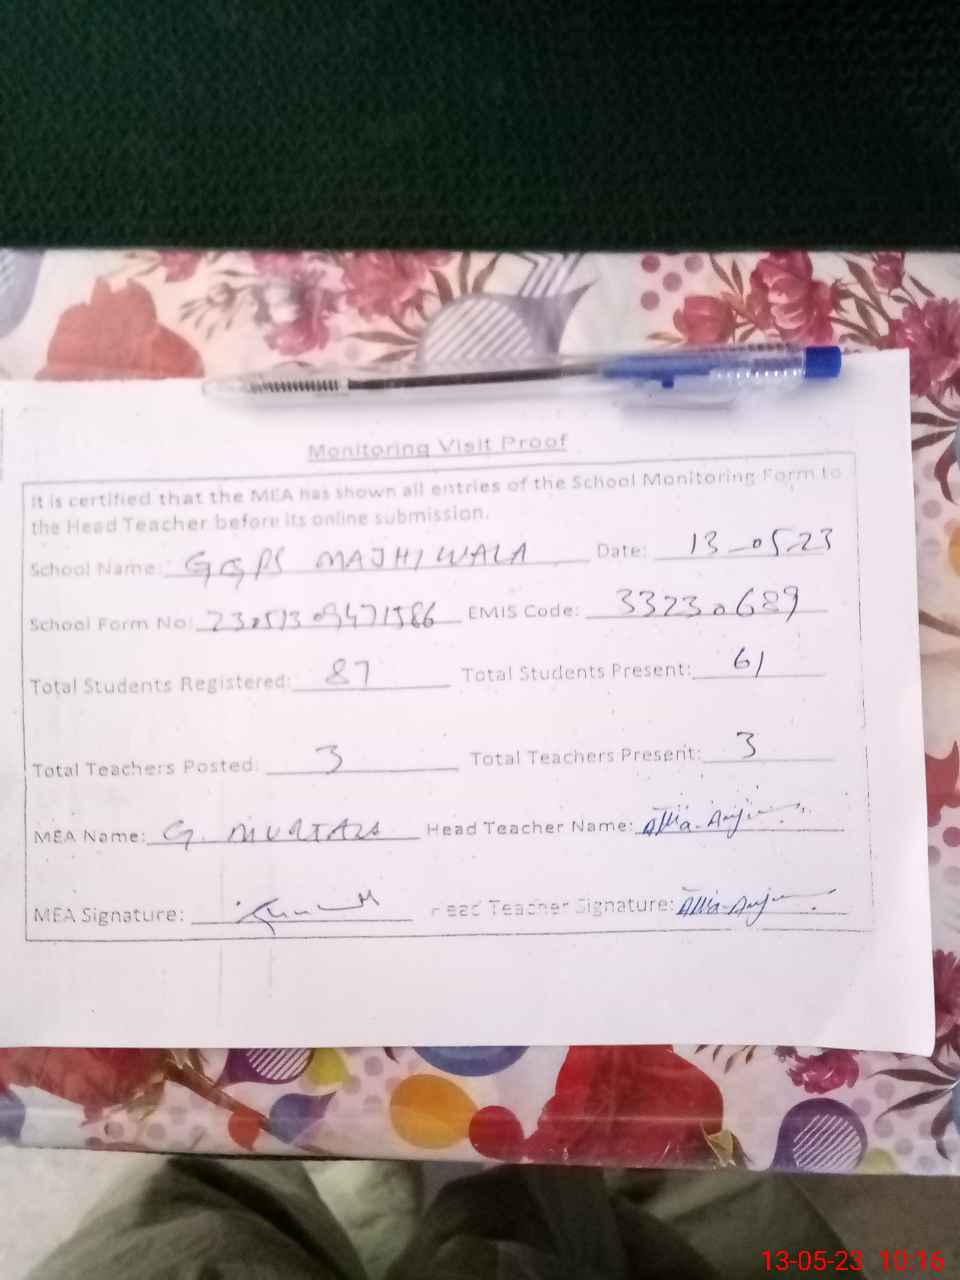 Monitoring Visit Proof
It is certified that the MEA has shown all entries of the School Monitoring Form to
the Head Teacher before its online submission.
School Name: GGPS MAJHIWALA Date: 13-05-23
School Form No: EMIS Code: 33230689
Total Students Registered: 87 Total Students Present: 61
Total Teachers Posted: 3 Total Teachers Present: 3
MEA Name: G. MURTAZA Head Teacher Name:
MEA Signature: Head Teacher Signature:
13-05-23 10:16